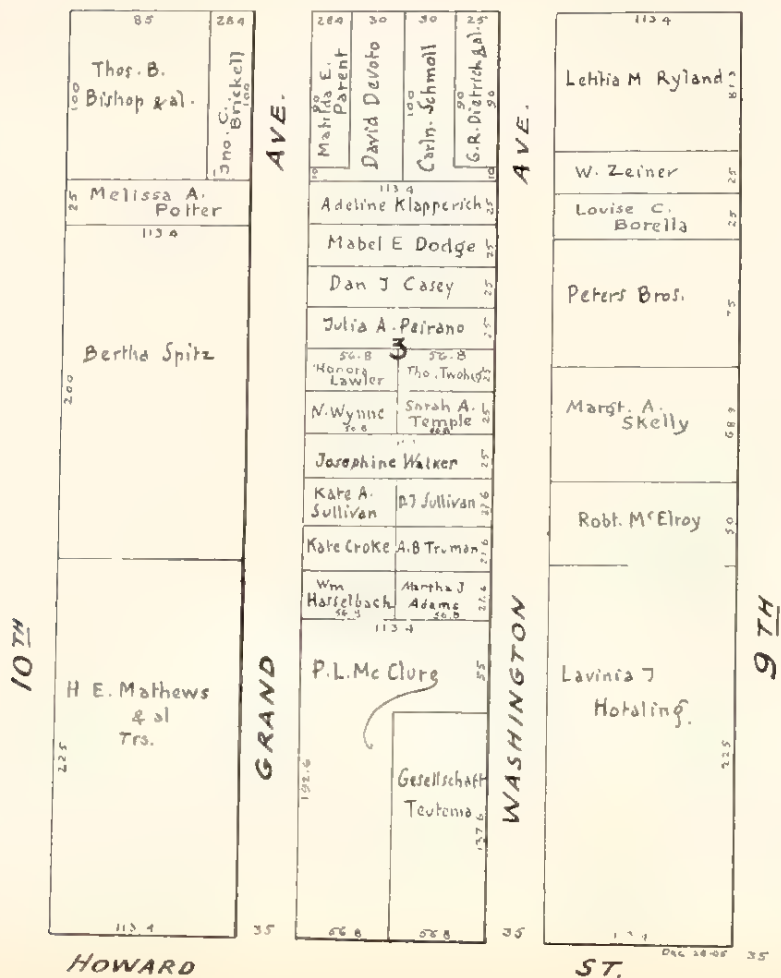 85
28 4
Thos. B.
Bishop & al.
100
Jno. C.
Brickell
100
25
Melissa A.
Potter
113 4
Bertha Spitz
200
H E. Mathews
& al
Trs.
225
113 4
10TH
GRAND
AVE.
35
28 4
30
30
25
Matilda E.
Parent
90
10
David Devoto
Carln. Schmoll
100
G.R. Dietrich & al.
90
90
10
113 4
Adeline Klapperich
25
Mabel E Dodge
25
Dan J Casey
25
Julia A. Peirano
25
3
56.8
56.8
Honora
Lawler
Tho. Twohig
25
N. Wynne
56.8
Sarah A.
Temple
56.8
25
Josephine Walker
25
Kate A.
Sullivan
D J Sullivan
27.6
Kate Croke
A.B Truman
27.6
Wm
Hasselbach
56.8
Martha J
Adams
56.8
27.6
113 4
P. L. Mc Clure
55
192.6
Gesellschaft
Teutonia
137.6
56 8
56 8
WASHINGTON
AVE.
35
113 4
Letitia M Ryland
81 3
W. Zeiner
25
Louise C.
Borella
25
Peters Bros.
75
Margt. A.
Skelly
68 9
Robt. McElroy
50
Lavinia J
Hotaling.
225
9TH
Dec 28-05
35
HOWARD
ST.